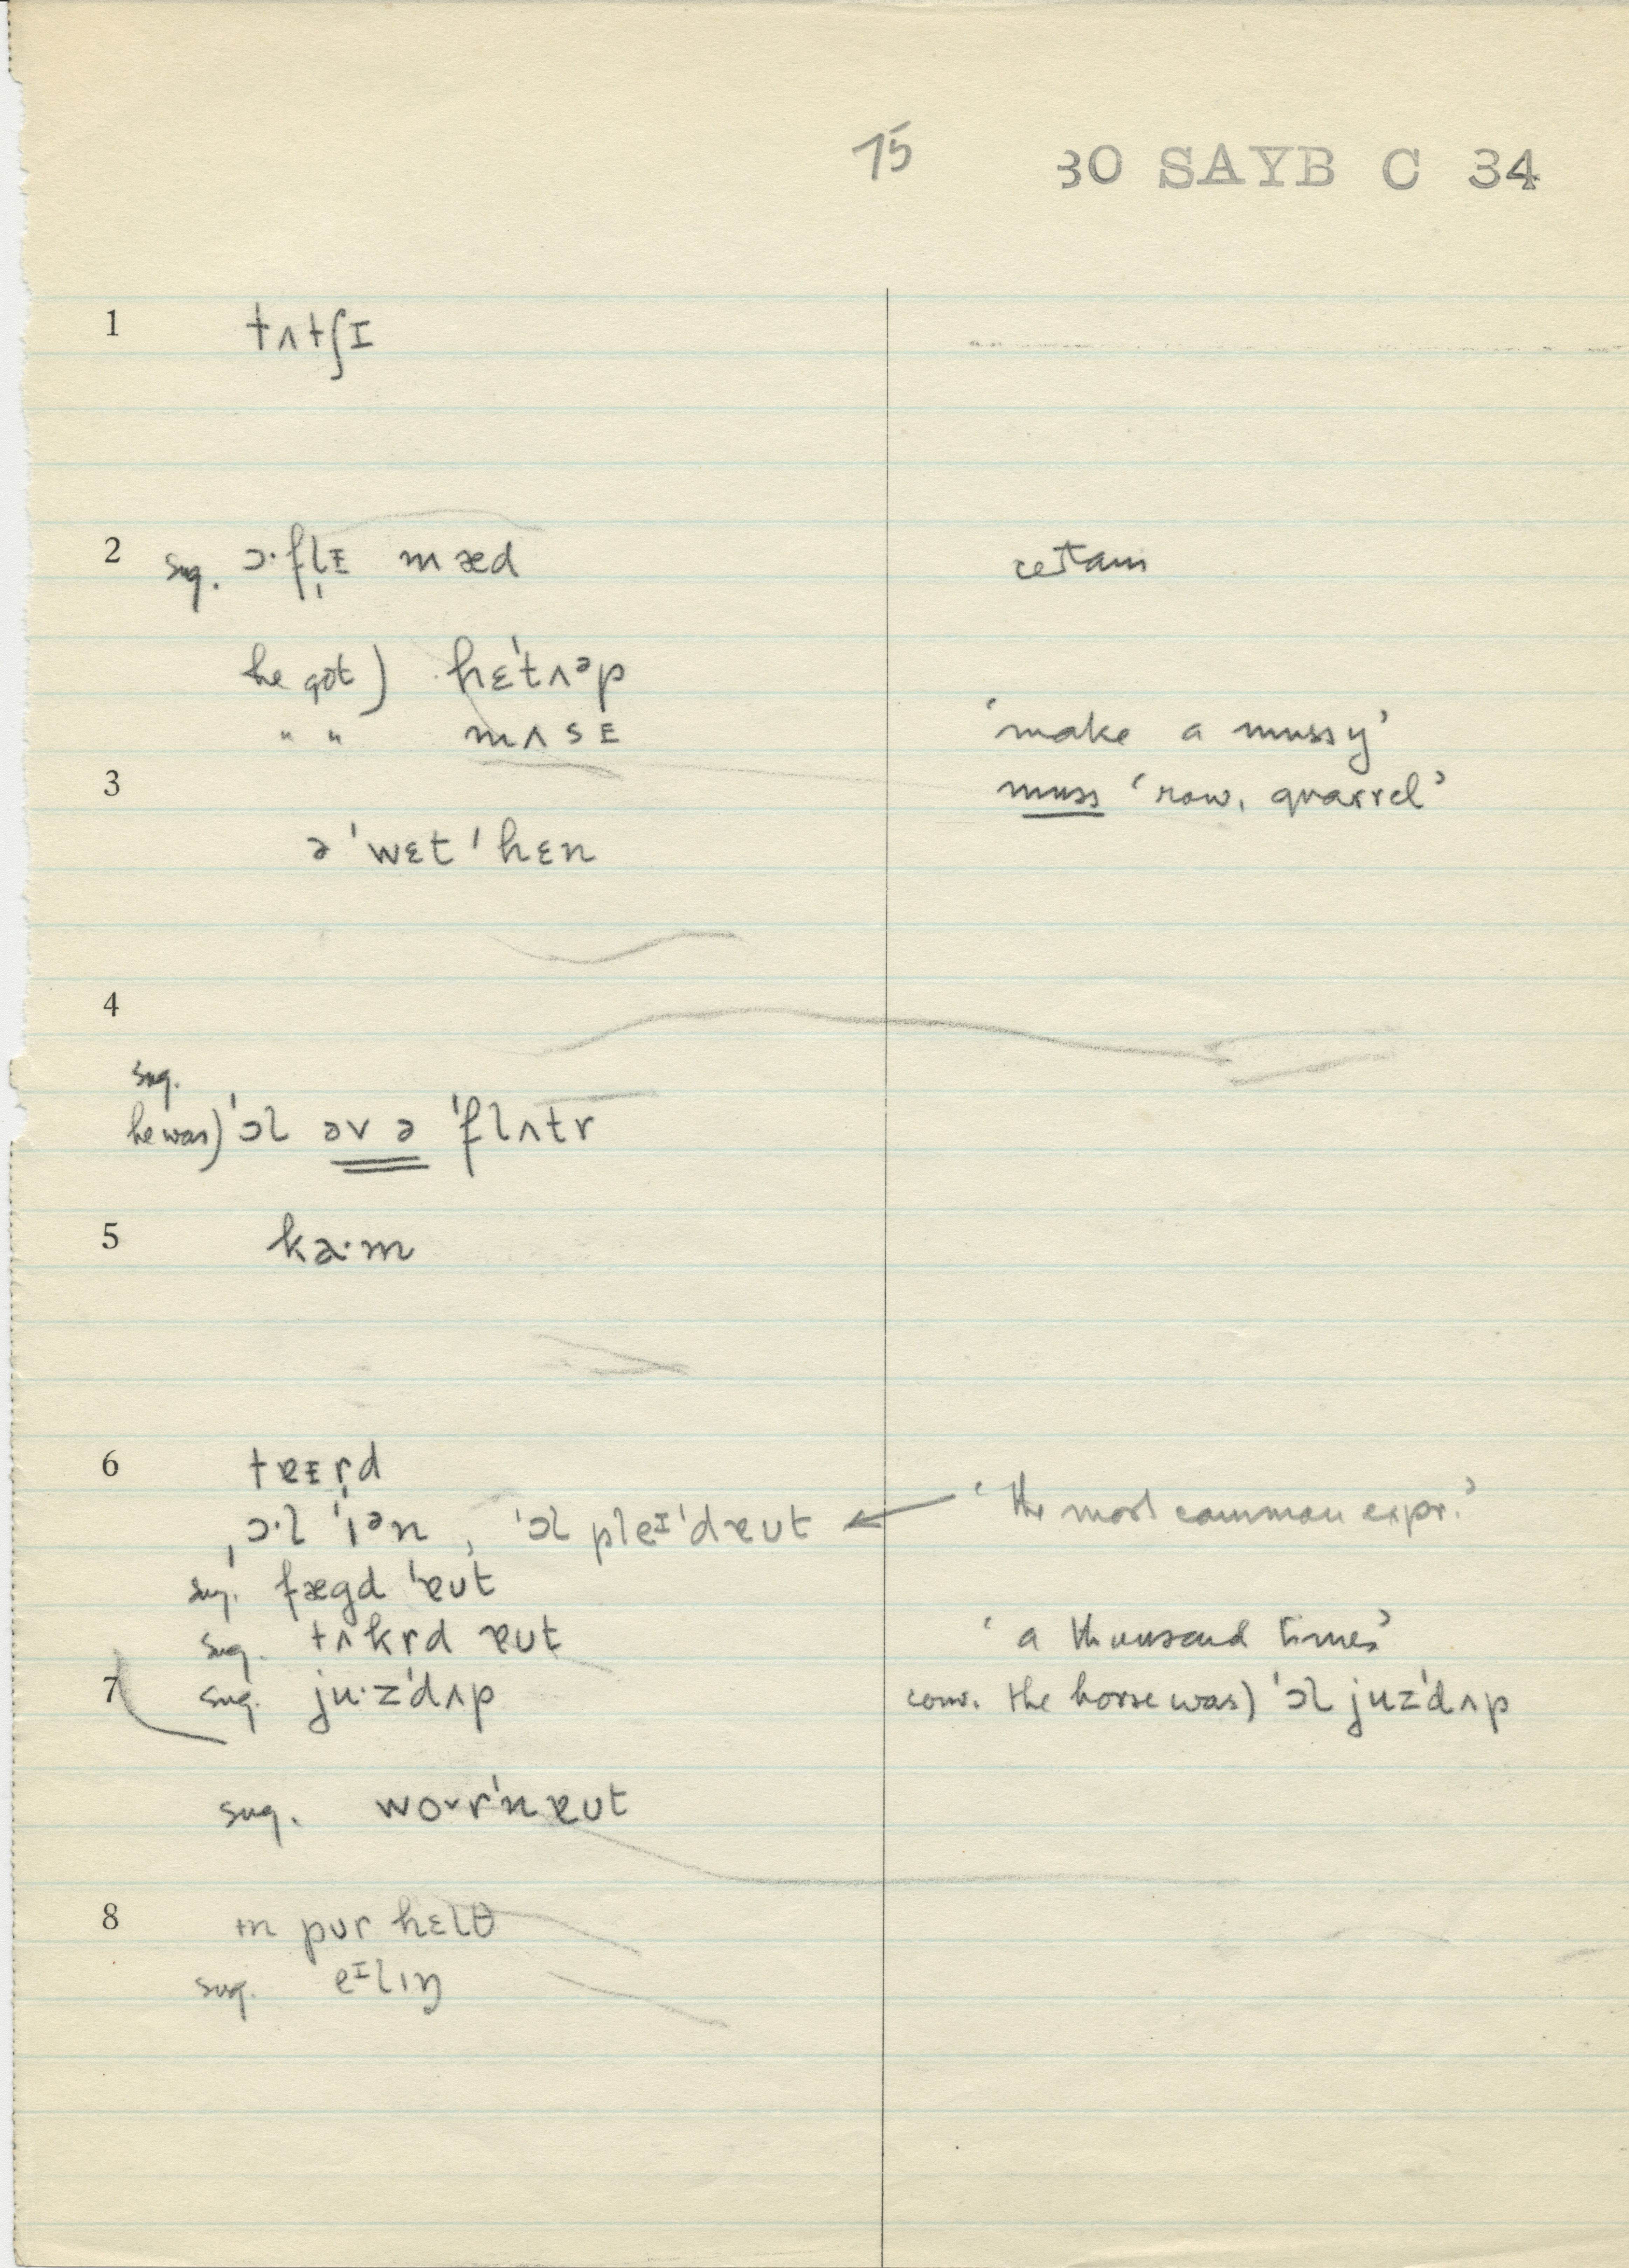 75 30 SAYB C 34
1 tʌtʃɪ
2 sug. ɔ·fl̩ɪ mæd certain
he got) hɛ'tʌᵊp
" " mʌsɪ 'make a mussy'
3 muss 'row, quarrel'
ə 'wɛt 'hɛn
4
sug.
he was) 'ɔl əv ə 'flʌtr
5 ka·m
6 tɐɪr̩d
ˌɔ·l 'ɪᵊn , 'ɔl pleᶦ'dɐʊt ← 'the most common expr.'
sug. fægd 'ɐʊt
sug. tʌkrd ɐʊt 'a thousand times'
7 sug. ju·z'dʌp conv. the horse was) 'ɔl juz'dʌp
sug. woᵛr'nɐʊt
8 ɪn pʊr hɛlθ
sug. eᶦlɪŋ